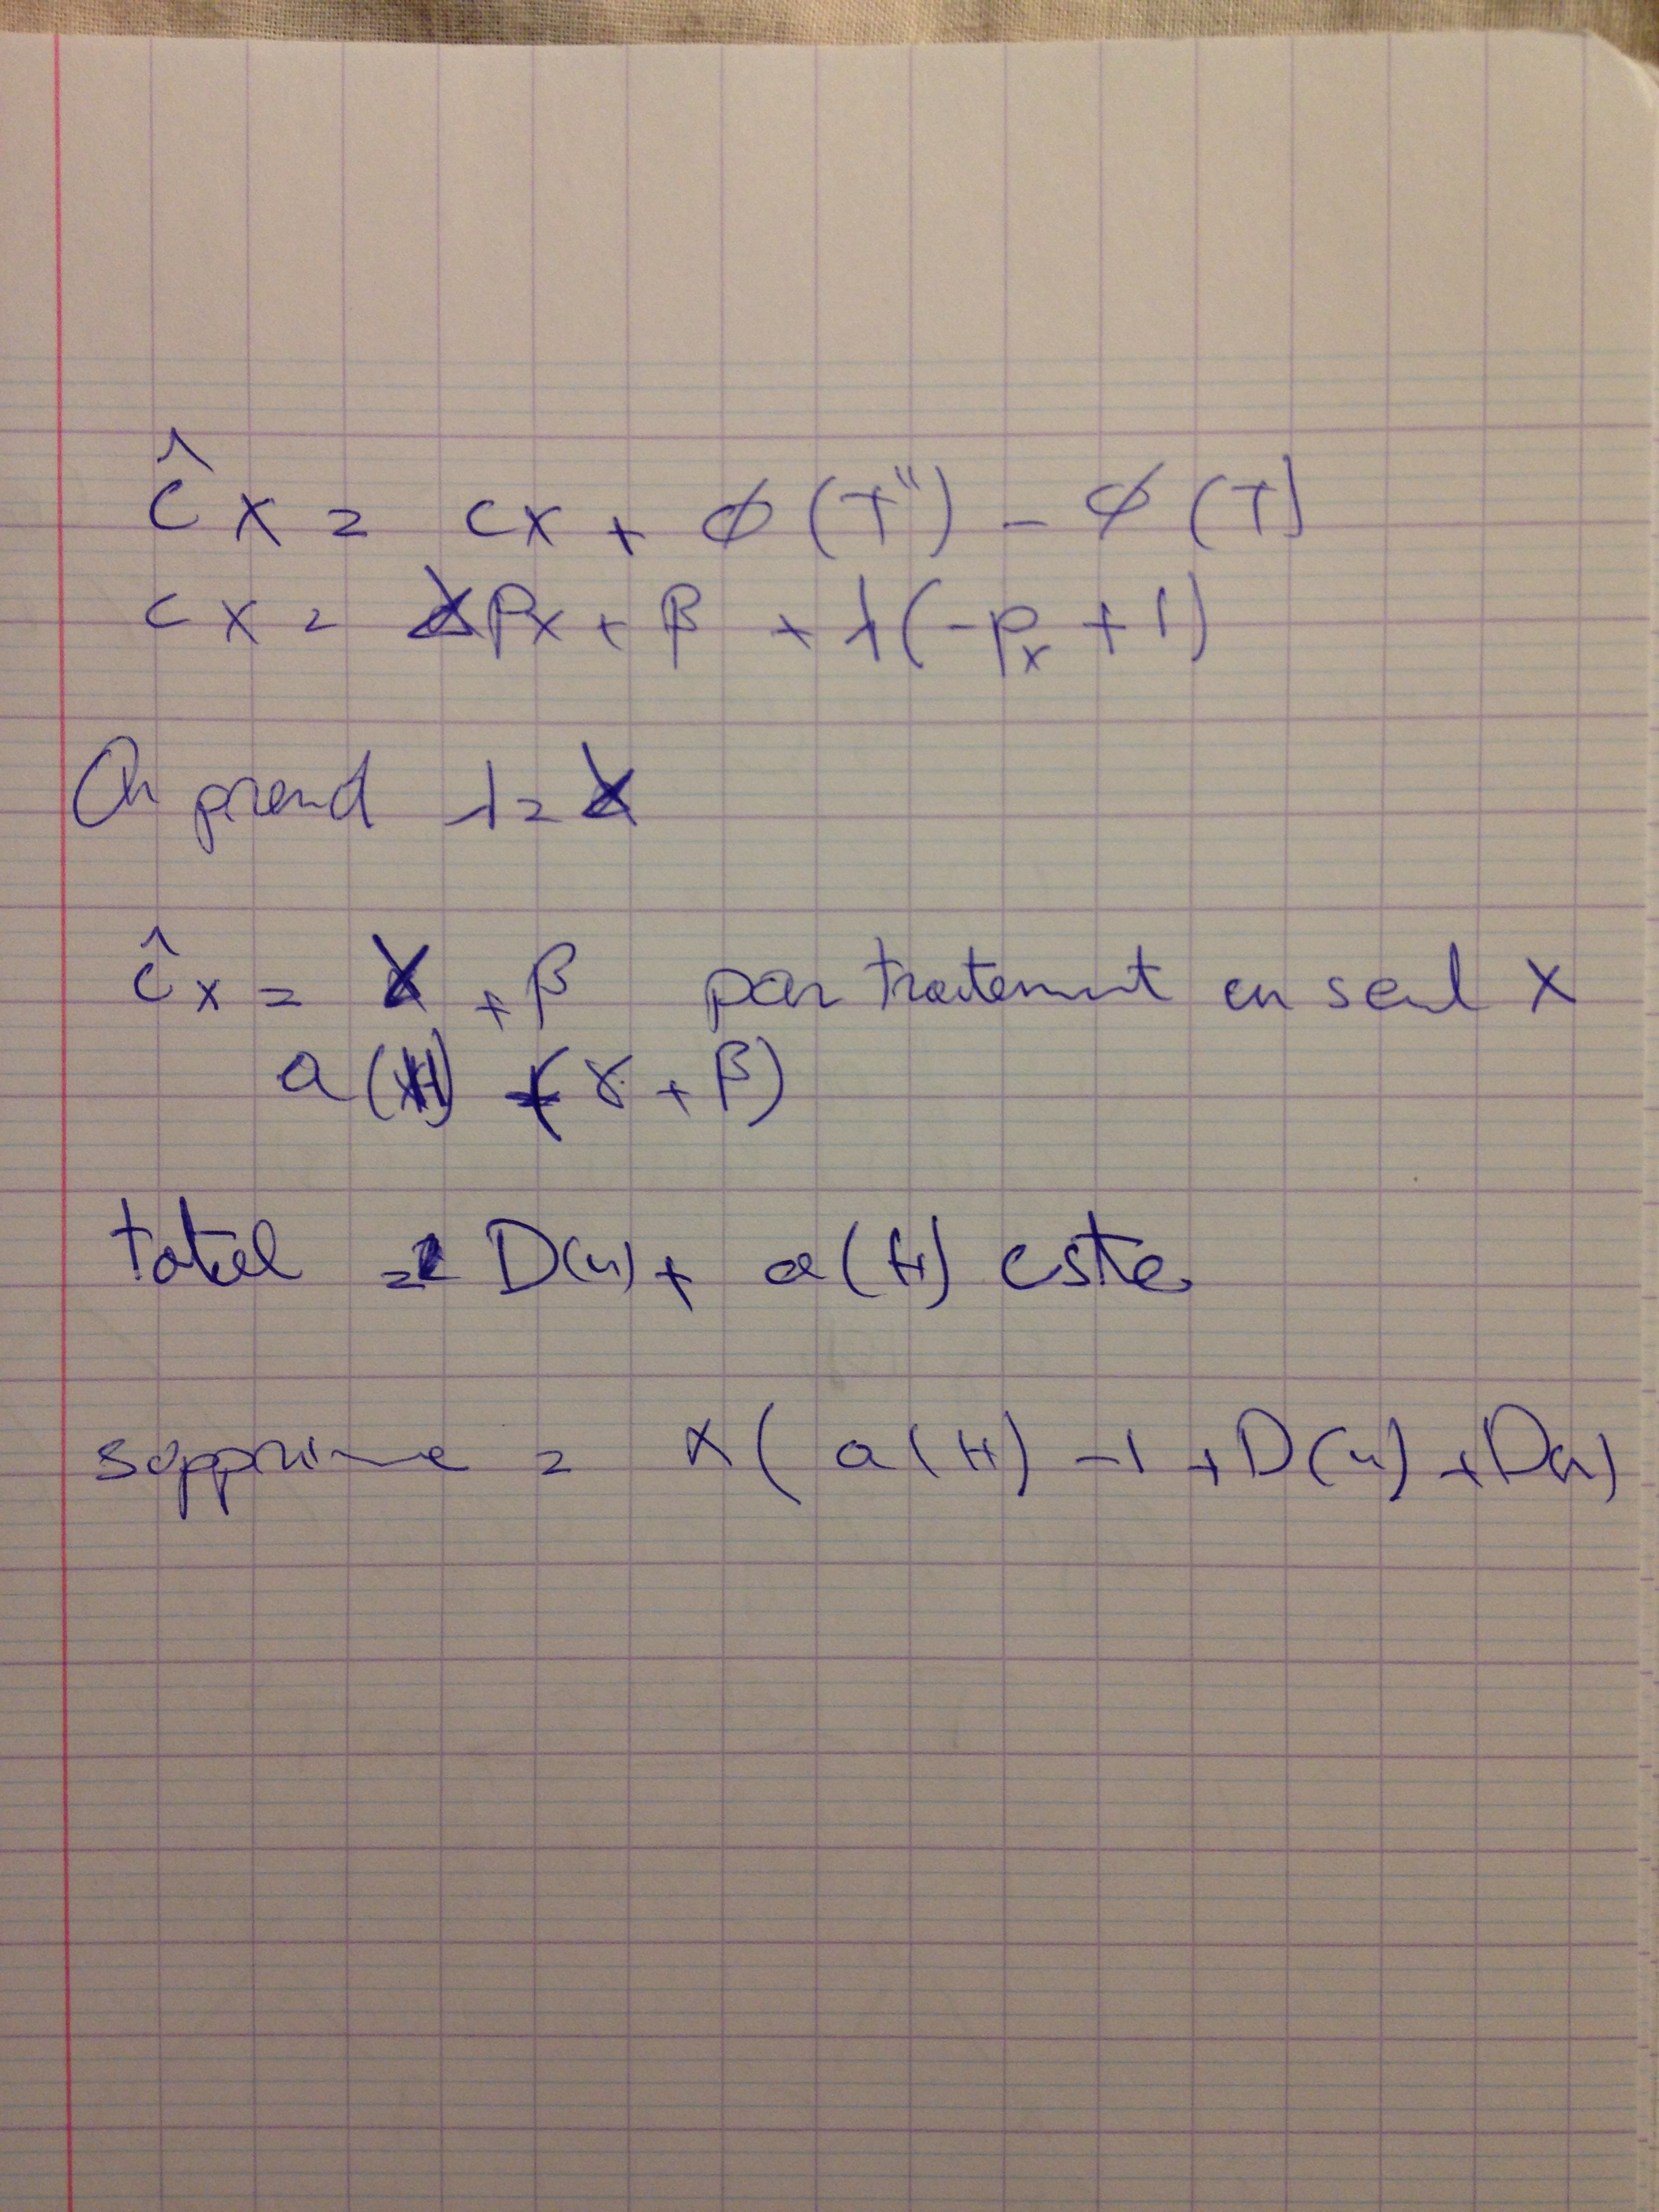 ĉx = cx + φ(T'') - φ(T)
cx = γpx + β + λ(-px + 1)
On prend λ = γ
ĉx = γ + β par traitement un seul x
a(H) (γ + β)
total = D(u) + a(H) cste
supprime = x(a(H) -1 + D(u) + D(v)